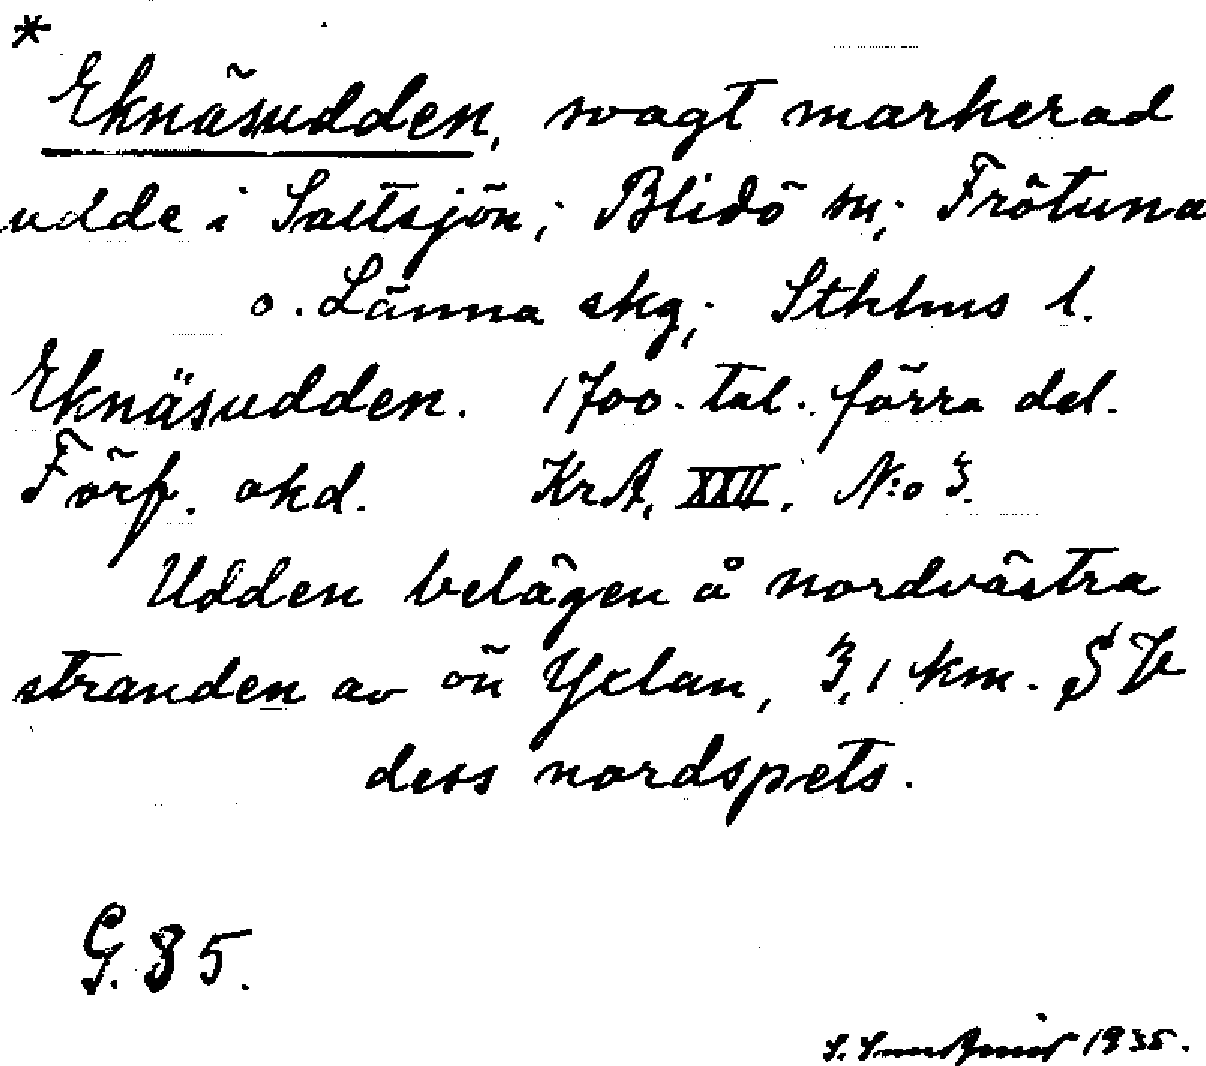 *
Eknäsudden, svagt markerad
udde i Saltsjön; Blidö sn; Frötuna
o. Länna skg; Sthlms l.
Eknäsudden. 1700-tal. förra del.
Förf. okd. KrA, XXII. N:o 3.
Udden belägen å nordvästra
stranden av ön Yxlan, 3,1 km. SV
dess nordspets.
G. 85.
S. 1935.